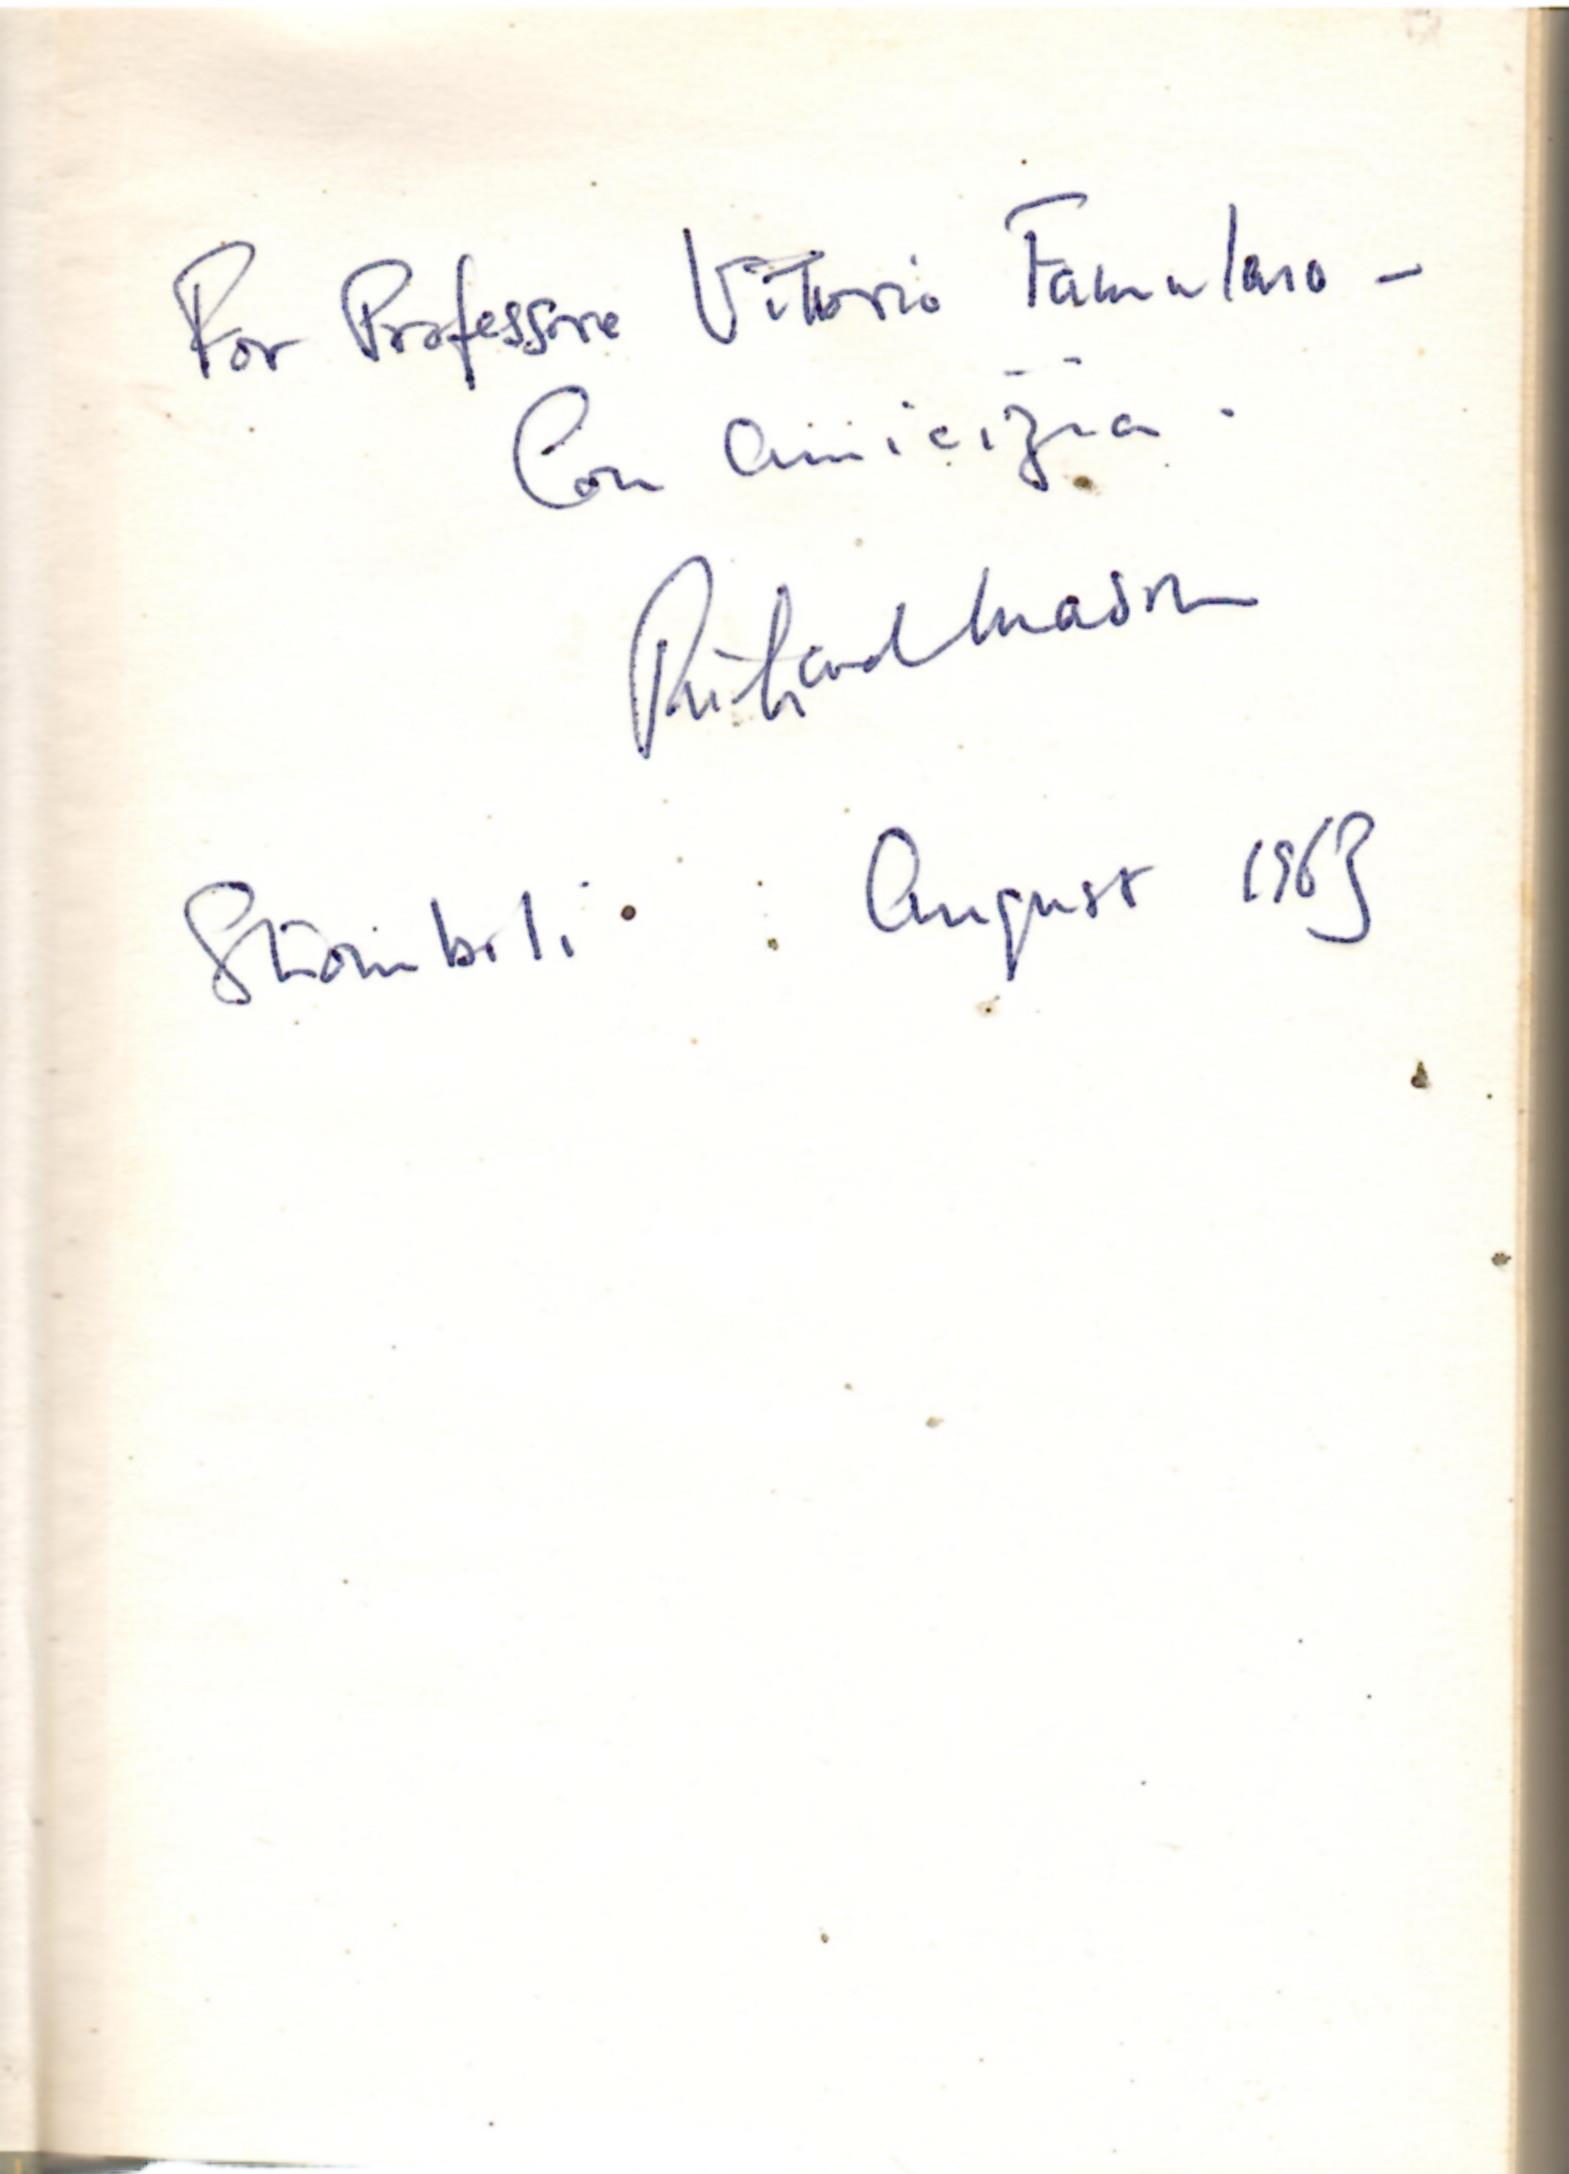 For Professore Vittorio Famularo -
Con amicizia.
Richard Mason
Stromboli : August 1963